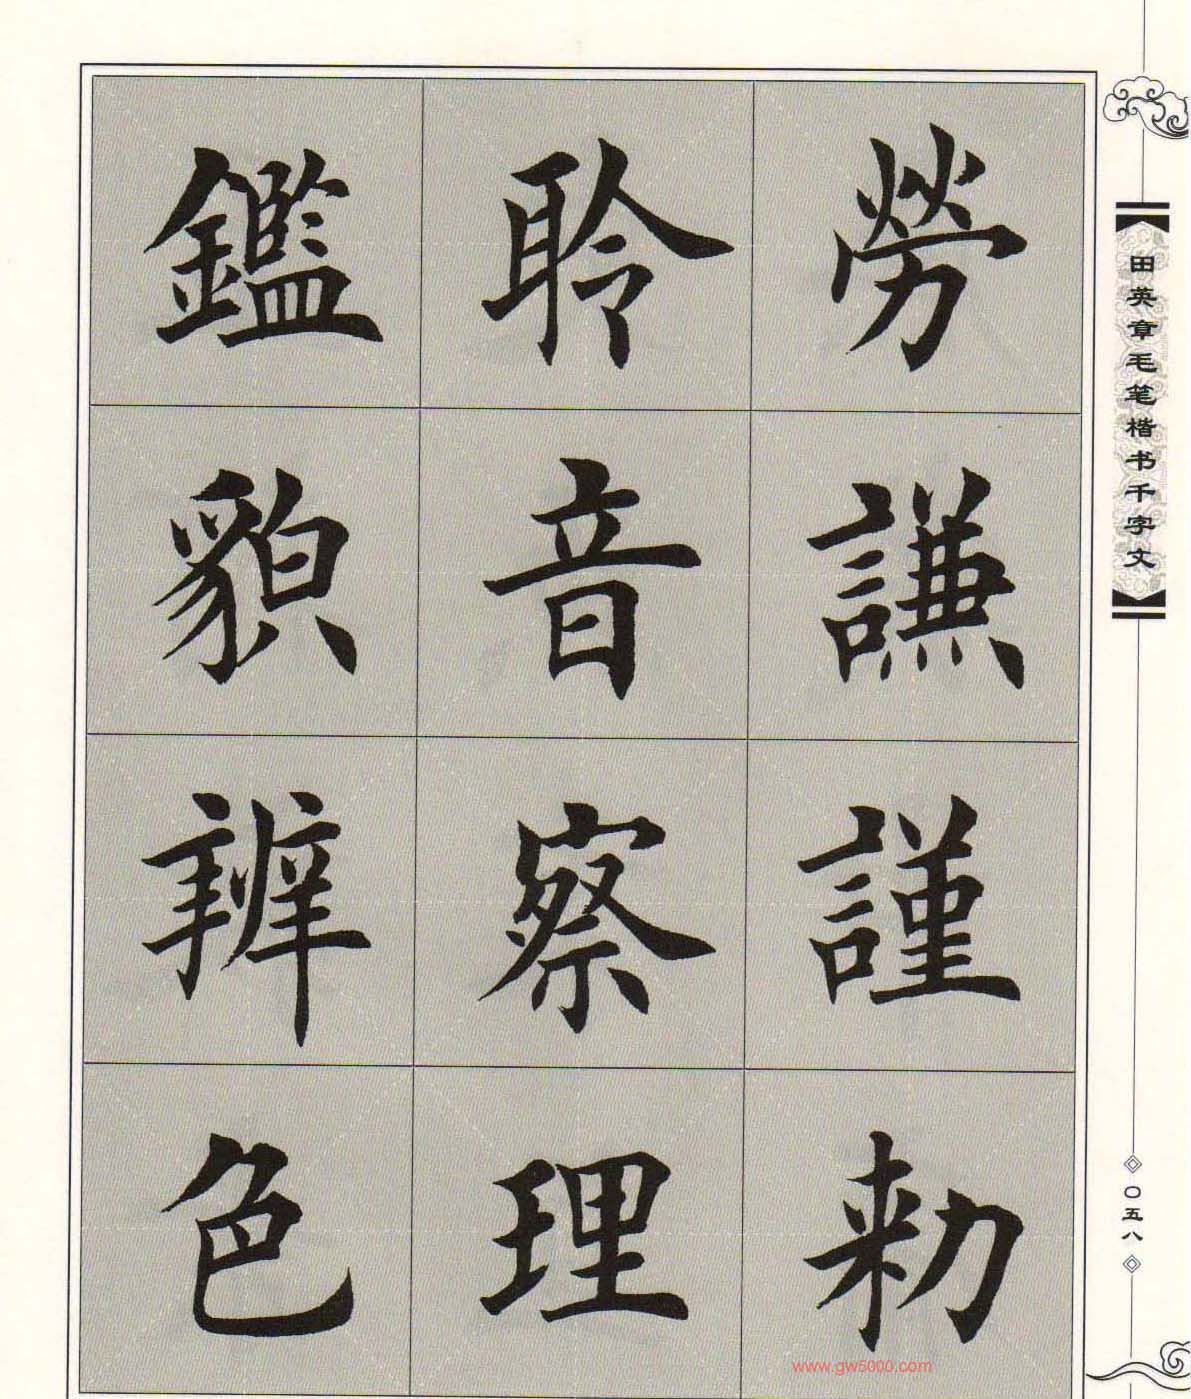 勞謙謹勑
聆音察理
鑑貌辨色
田英章毛笔楷书千字文
〇五八
www.gw5000.com